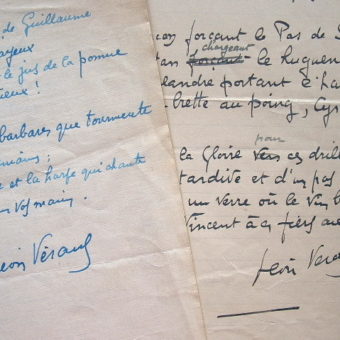 de Guillaume
ayeux
le jus de la pomme
ieux !
barbares que tourmente
et la harpe qui chante
vos mains
Léon Vérane
forçant le Pas de
chargeant
le Huguen
andre portant à
brette au poing, Cyr
pour
la Gloire vers ces drill
tardive et d'un pas
un verre où le vin
Vincent à
Léon Vera